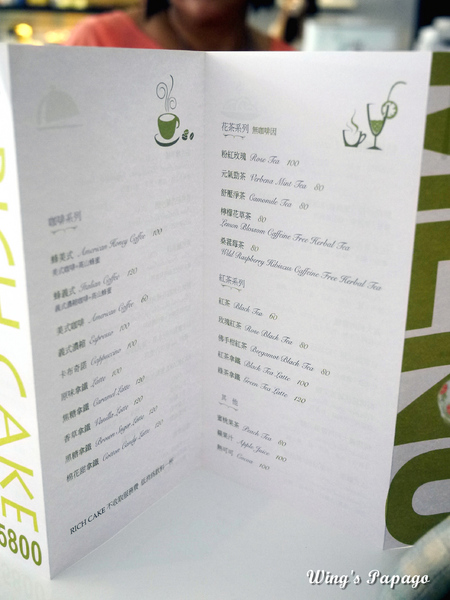 咖啡系列
蜂美式 American Honey Coffee 100
美式咖啡+高山蜂蜜
蜂義式 Italian Coffee 120
義式濃縮咖啡+高山蜂蜜
美式咖啡 American Coffee 60
義式濃縮 Espresso 100
卡布奇諾 Cappuccino 100
原味拿鐵 Latte 100
焦糖拿鐵 Caramel Latte 120
香草拿鐵 Vanilla Latte 120
黑糖拿鐵 Brown Sugar Latte 120
棉花甜拿鐵 Cotton Candy Latte 120
RICH CAKE 不收取服務費
花茶系列 無咖啡因
粉紅玫瑰 Rose Tea 100
元氣馞茶 Verbena Mint Tea 80
舒壓淨茶 Camomile Tea 80
檸檬花草茶 80
Lemon Blossom Caffeine Free Herbal Tea
桑莓莓茶 80
Wild Raspberry Hibiscus Caffeine Free Herbal Tea
紅茶系列
紅茶 Black Tea 60
玫瑰紅茶 Rose Black Tea 80
佛手柑紅茶 Bergamot Black Tea 80
紅茶拿鐵 Black Tea Latte 100
綠茶拿鐵 Green Tea Latte 120
其他
蜜桃果茶 Peach Tea 80
蘋果汁 Apple Juice 100
熱可可 Cocoa 100
RICH CAKE
5800
MENU
Wing's Papago